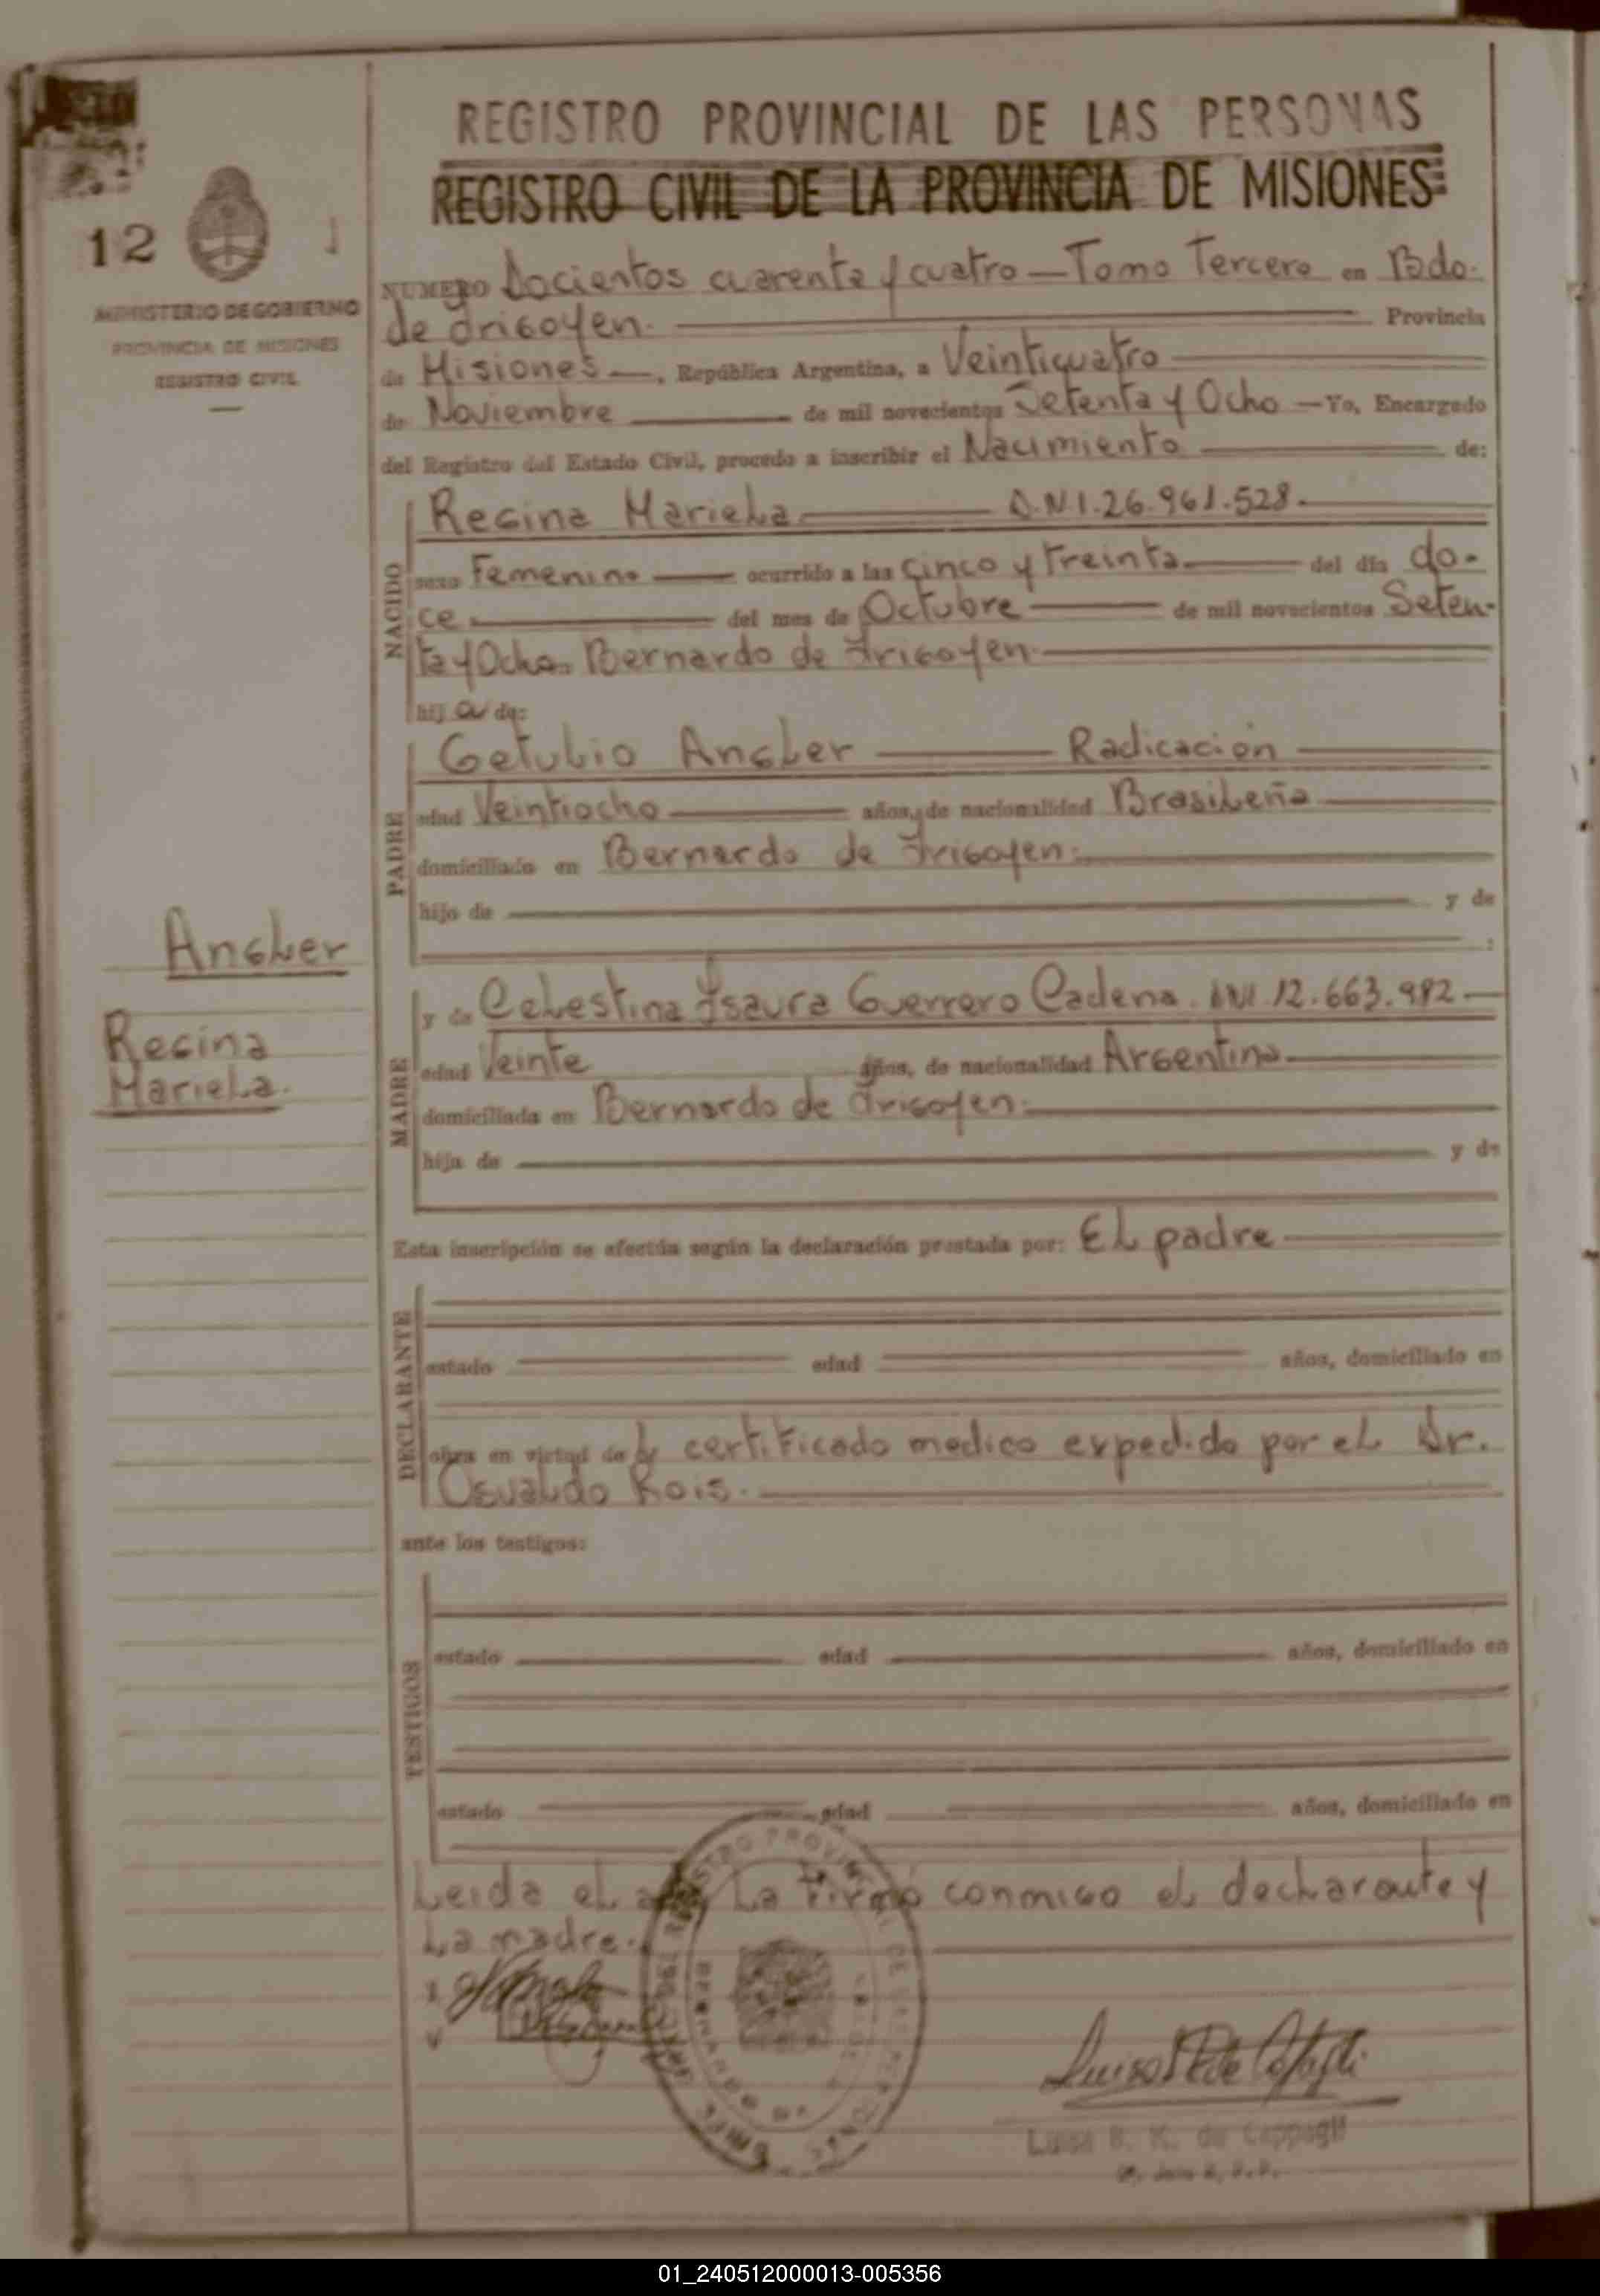 REGISTRO PROVINCIAL DE LAS PERSONAS
REGISTRO CIVIL DE LA PROVINCIA DE MISIONES
12
MINISTERIO DE GOBIERNO
PROVINCIA DE MISIONES
REGISTRO CIVIL
NUMERO Docientos cuarenta y cuatro — Tomo Tercero en Bdo.
de Irigoyen. Provincia
de Misiones —, República Argentina, a Veinticuatro
de Noviembre de mil novecientos Setenta y Ocho — Yo, Encargado
del Registro del Estado Civil, procedo a inscribir el Nacimiento de:
NACIDO
Regina Mariela D.N.I. 26.961.528.
sexo Femenino ocurrido a las cinco y treinta del día do-
ce del mes de Octubre de mil novecientos Seten-
ta y Ocho. Bernardo de Irigoyen.
hija de:
PADRE
Getulio Angler Radicación
edad Veintiocho años, de nacionalidad Brasileña
domiciliado en Bernardo de Irigoyen.
hijo de y de
Angler
Regina
Mariela.
MADRE
y de Celestina Isaura Guerrero Cadena. DNI. 12.663.982
edad Veinte años, de nacionalidad Argentina
domiciliada en Bernardo de Irigoyen.
hija de y de
Esta inscripción se efectúa según la declaración prestada por: El padre
DECLARANTE
estado edad años, domiciliado en
obra en virtud de certificado medico expedido por el Dr.
Osvaldo Rois.
ante los testigos:
TESTIGOS
estado edad años, domiciliado en
estado edad años, domiciliado en
Leida el La firmó conmigo el declarante y
La madre.
Luisa B. K. de Cappagli
01_240512000013-005356